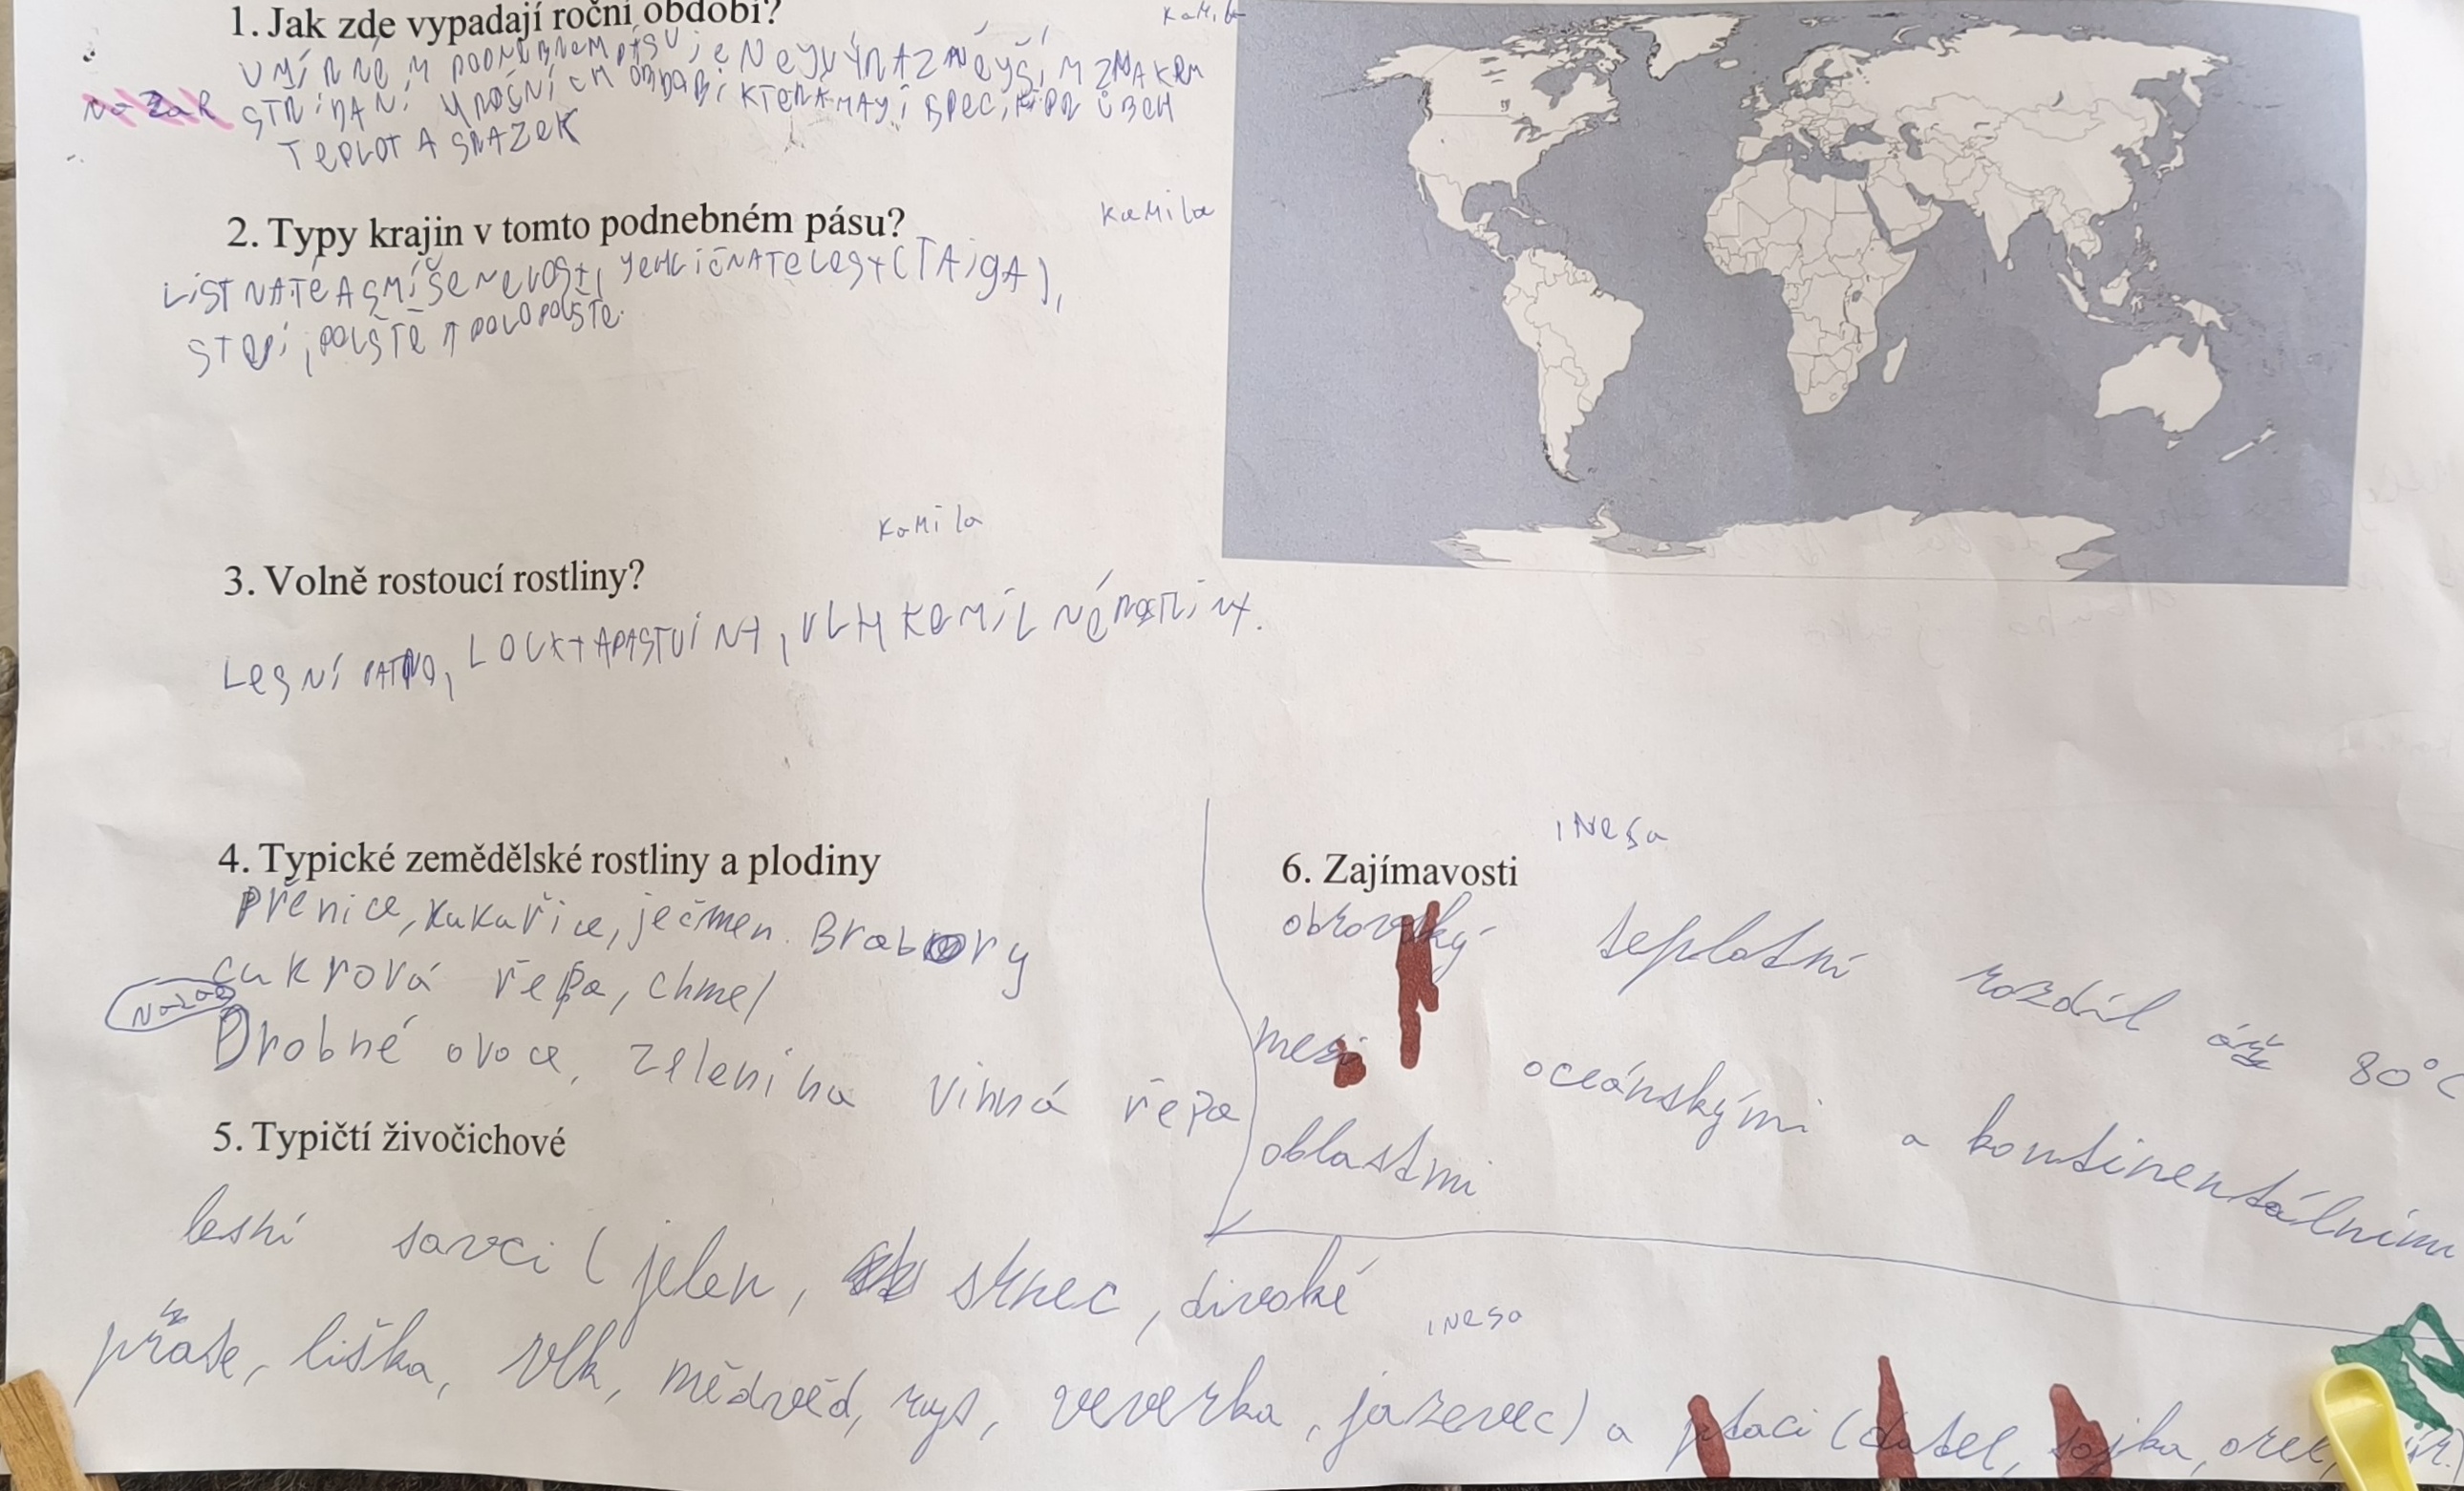 1. Jak zde vypadají roční období?
Kamila
V MÍRNÉM PODNEBNEM PÁSU je NeJVÝRAZNĚJŠÍM ZNAKEM
NaZaR
STŘÍDANÍ ROČNÍCH OBDOBÍ KTERÁ MAJÍ
TePLOT A SRAZeK
2. Typy krajin v tomto podnebném pásu?
Kamila
LiSTNATÉ A SMÍŠeNe LeSY, JeHLičNATe LeSY (TAigA),
STePi, POUŠTĚ A POLOPOUŠTe.
Kamila
3. Volně rostoucí rostliny?
LeSNÍ PATRO, LOUKY A PASTVINY, VLHKOMILNÉ ROSTLINY.
4. Typické zemědělské rostliny a plodiny
Přenice, kukuřice, ječmen. Brabory
cukrová řepa, chmel
Nazar
Drobné ovoce, zelenina vinná řepa
5. Typičtí živočichové
lesní savci (jelen, srnec, divoké
prase, liška, vlk, mědvěd, rys, veverka, jazevec) a ptaci (datel, sojka, orel,
inesa
inesa
6. Zajímavosti
obrovský teplotní rozdíl 80°C
mezi oceánskými a kontinentálními
oblastmi